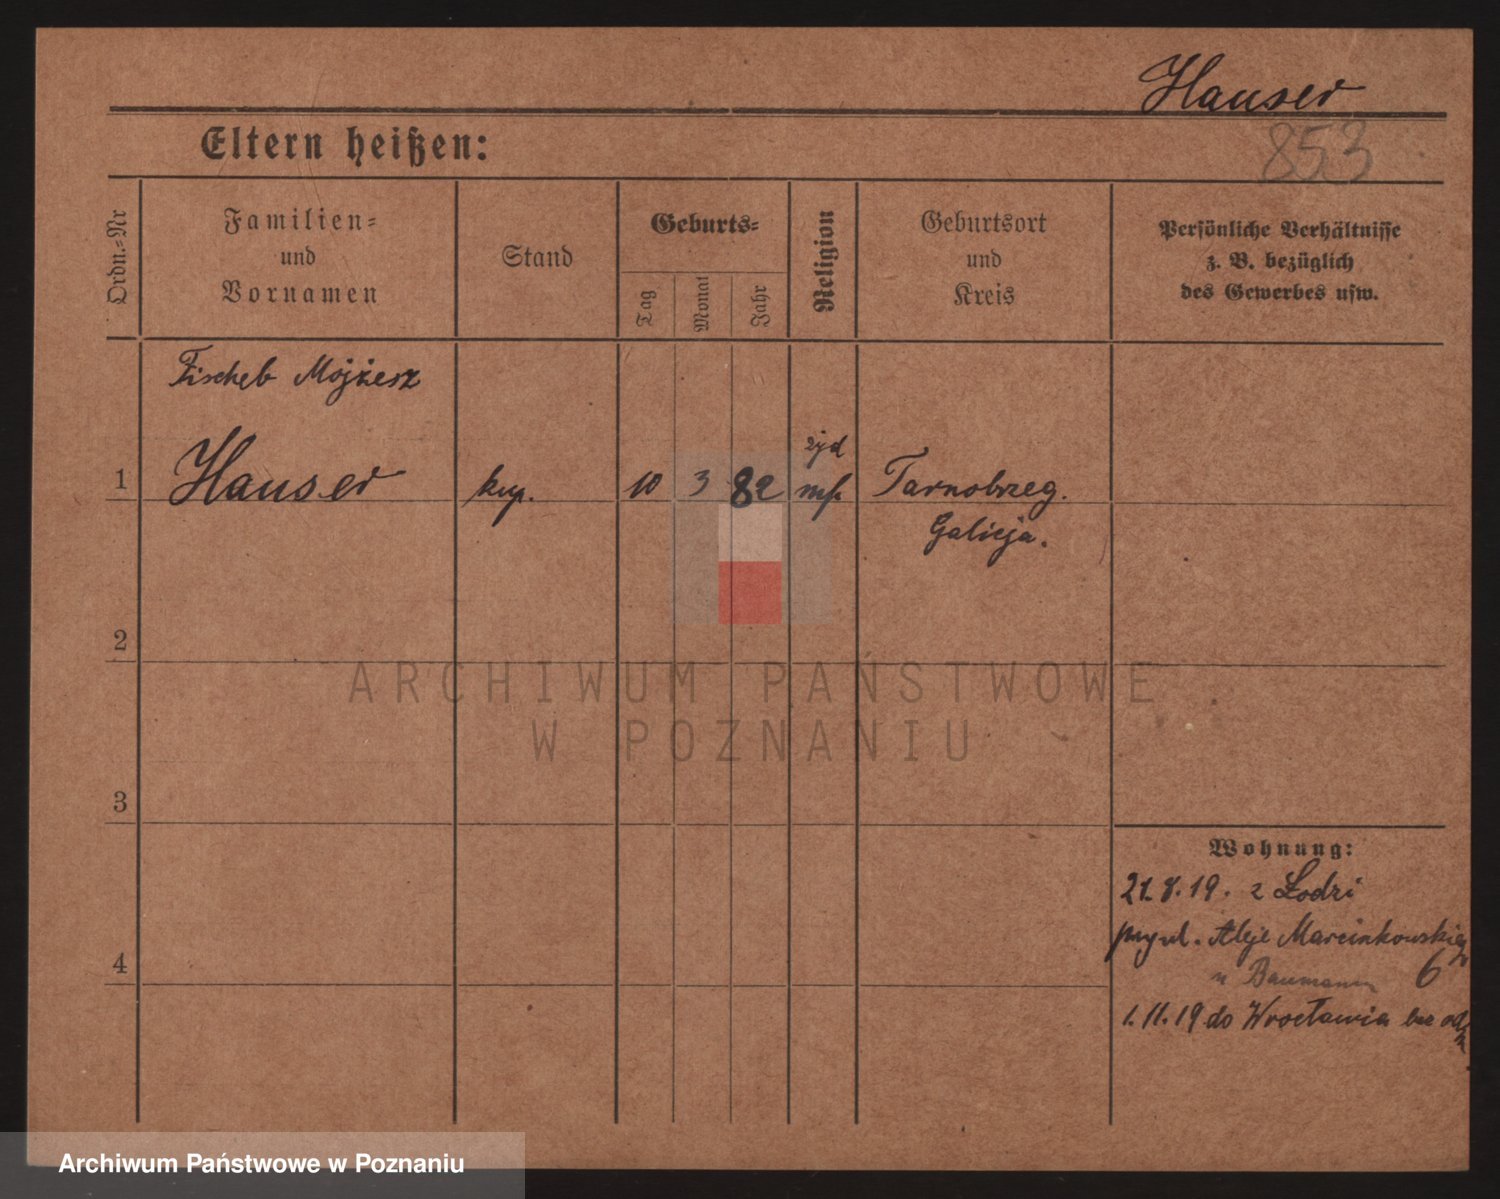 Hauser
853
Eltern heißen:
Ordn.-Nr
Familien-
und
Vornamen
Stand
Geburts-
Tag
Monat
Jahr
Religion
Geburtsort
und
Kreis
Persönliche Verhältnisse
z. B. bezüglich
des Gewerbes usw.
Mojżesz
1 Hauser kup. 10 3 82 Tarnobrzeg.
Galicja.
2
ARCHIWUM PAŃSTWOWE
W POZNANIU
3
Wohnung:
21.8.19. z Łodzi
Aleje Marcinkowskieg
4
u Baumann 6
1.11.19 do Wrocławia bez
Archiwum Państwowe w Poznaniu